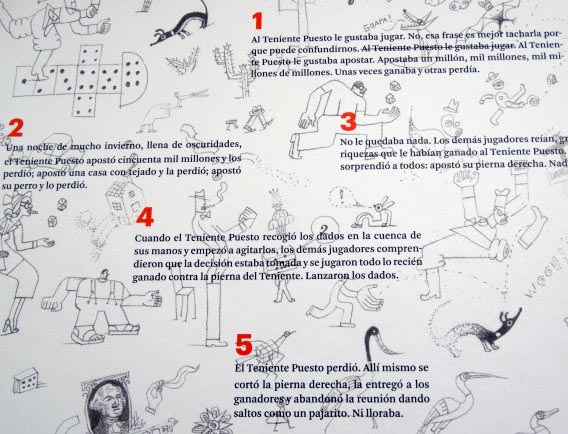 1
Al Teniente Puesto le gustaba jugar. No, esa frase es mejor tacharla por-
que puede confundirnos. Al Teniente Puesto le gustaba jugar. Al Tenien-
te Puesto le gustaba apostar. Apostaba un millón, mil millones, mil mi-
llones de millones. Unas veces ganaba y otras perdía.
2
Una noche de mucho invierno, llena de oscuridades,
el Teniente Puesto apostó cincuenta mil millones y los
perdió; apostó una casa con tejado y la perdió; apostó
su perro y lo perdió.
3
No le quedaba nada. Los demás jugadores reían, gr
riquezas que le habían ganado al Teniente Puesto.
sorprendió a todos: apostó su pierna derecha. Nad
4
Cuando el Teniente Puesto recogió los dados en la cuenca de
sus manos y empezó a agitarlos, los demás jugadores compren-
dieron que la decisión estaba tomada y se jugaron todo lo recién
ganado contra la pierna del Teniente. Lanzaron los dados.
5
El Teniente Puesto perdió. Allí mismo se
cortó la pierna derecha, la entregó a los
ganadores y abandonó la reunión dando
saltos como un pajarito. Ni lloraba.
GUAPA!